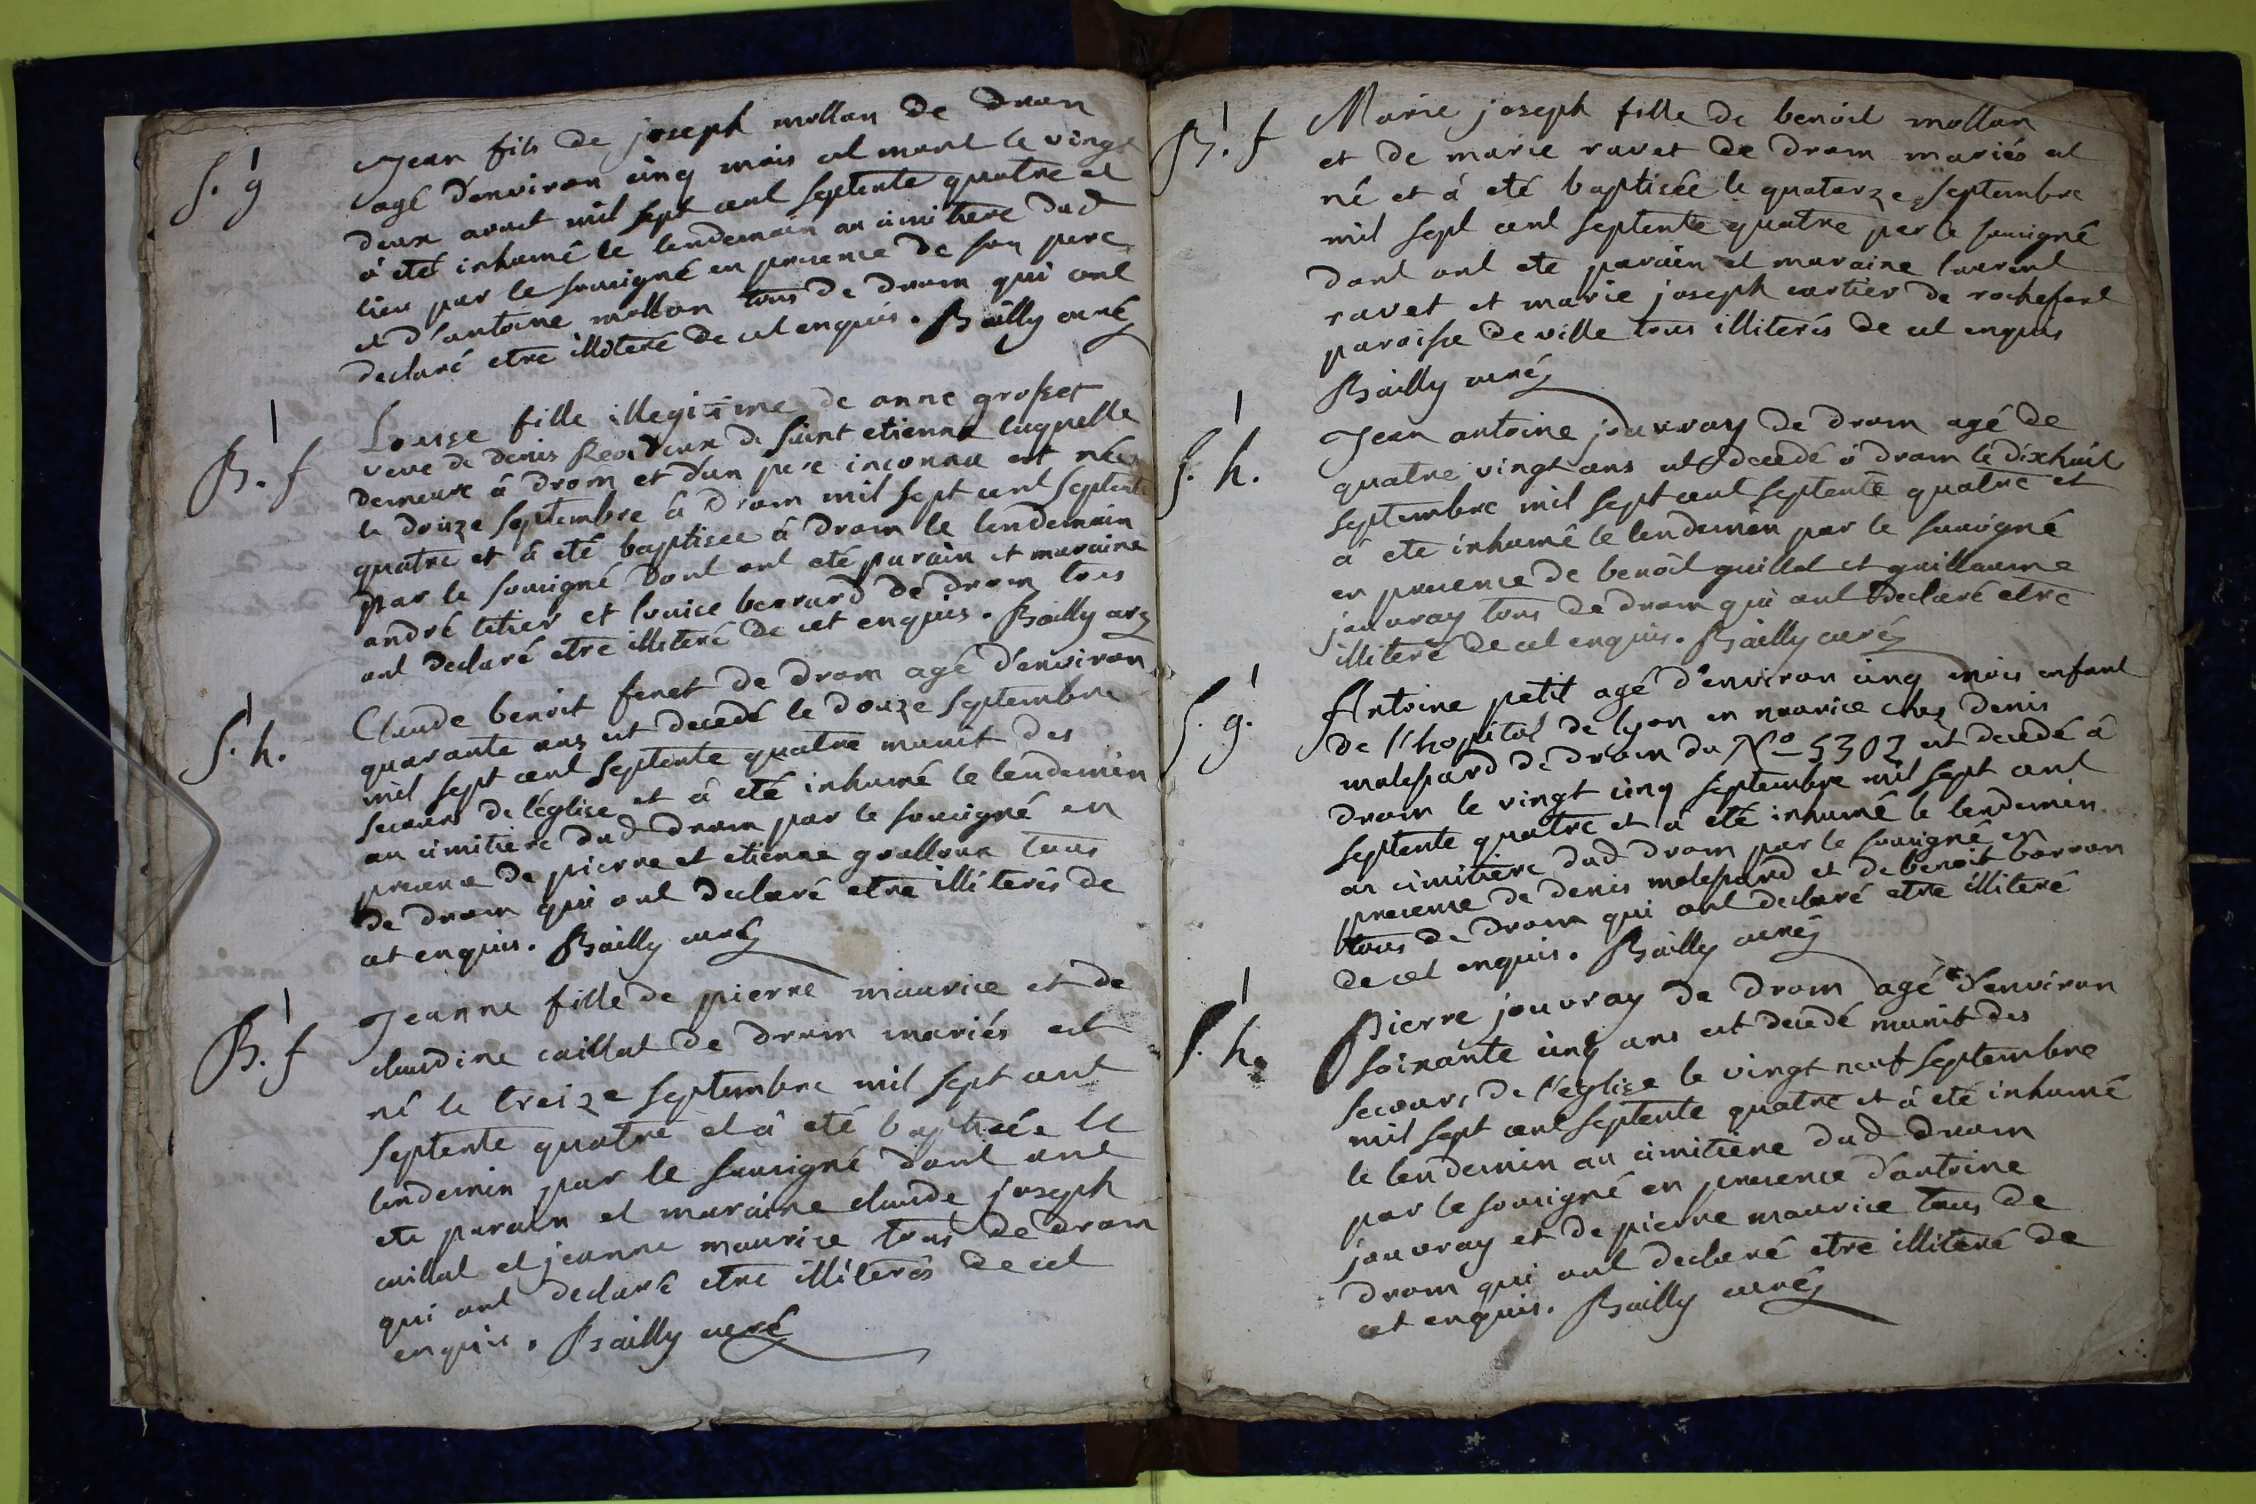 S. g
Jean fils de joseph mollan de dram
agé d'environ cinq mois est mort le vingt
deux aout mil sept cent septente quatre et
à eté inhumé le lendemain au cimitiere dud
lieu par le sousigné en presence de son pere
et d'antoine mollan tous de dram qui ont
declaré etre illiteré de cet enquis. Bailly curé
B. f
Louise fille illegitime de anne grosset
veve de denis de saint etienne laquelle
demeure à dram et d'un pere inconnu est née
le douze septembre à dram mil sept cent septente
quatre et à eté baptisée à dram le lendemain
par le sousigné dont ont eté parain et maraine
andré tetier et louise berrard de dram tous
ont declaré etre illiteré de cet enquis. Bailly curé
S. h.
Claude benoit feret de dram agé d'environ
quarante ans est decedé le douze septembre
mil sept cent septente quatre munit des
secours de l'églize et à eté inhumé le lendemin
au cimitiere dud dram par le sousigné en
presence de pierre et etienne goalloux tous
de dram qui ont declaré etre illiterés de
cet enquis. Bailly curé
B. f
Jeanne fille de pierre maurice et de
claudine caillat de dram mariés est
né le treize septembre mil sept cent
septente quatre et à eté baptisée le
lendemin par le sousigné dont ont
ete parain et maraine claude joseph
caillat et jeanne maurice tous de dram
qui ont declaré etre illiterés de cet
enquis. Bailly curé
B. f
Marie joseph fille de benoit mollan
et de marie ravet de dram mariés est
né et à eté baptisée le quatorze septembre
mil sept cent septente quatre par le sousigné
dont ont ete parain et maraine laurent
ravet et marie joseph cartier de rochefort
paroisse de ville tous illiterés de cet enquis
Bailly curé
S. h.
Jean antoine jouvray de dram agé de
quatre vingt ans est decedé à dram le dixhuit
septembre mil sept cent septente quatre et
à ete inhumé le lendemin par le sousigné
en presence de benoit guillot et guillaume
jouvray tous de dram qui ont declaré etre
illiteré de cet enquis. Bailly curé
S. g.
Antoine petit agé d'environ cinq mois enfant
de l'hopital de lyon en nourice chez denis
molepard de dram du No 5302 est decedé à
dram le vingt cinq septembre mil sept cent
septente quatre et à eté inhumé le lendemin
au cimitiere dud dram par le sousigné en
presence de denis molepard et de benoit borron
tous de dram qui ont declaré etre illiteré
de cet enquis. Bailly curé
S. h.
Pierre jouvray de dram agé d'environ
soixante cinq ans est decedé munit des
secours de l'eglize le vingt neuf septembre
mil sept cent septente quatre et à eté inhumé
le lendemin au cimitiere dud dram
par le sousigné en presence d'antoine
jouvray et de pierre maurice tous de
dram qui ont declaré etre illiteré de
cet enquis. Bailly curé